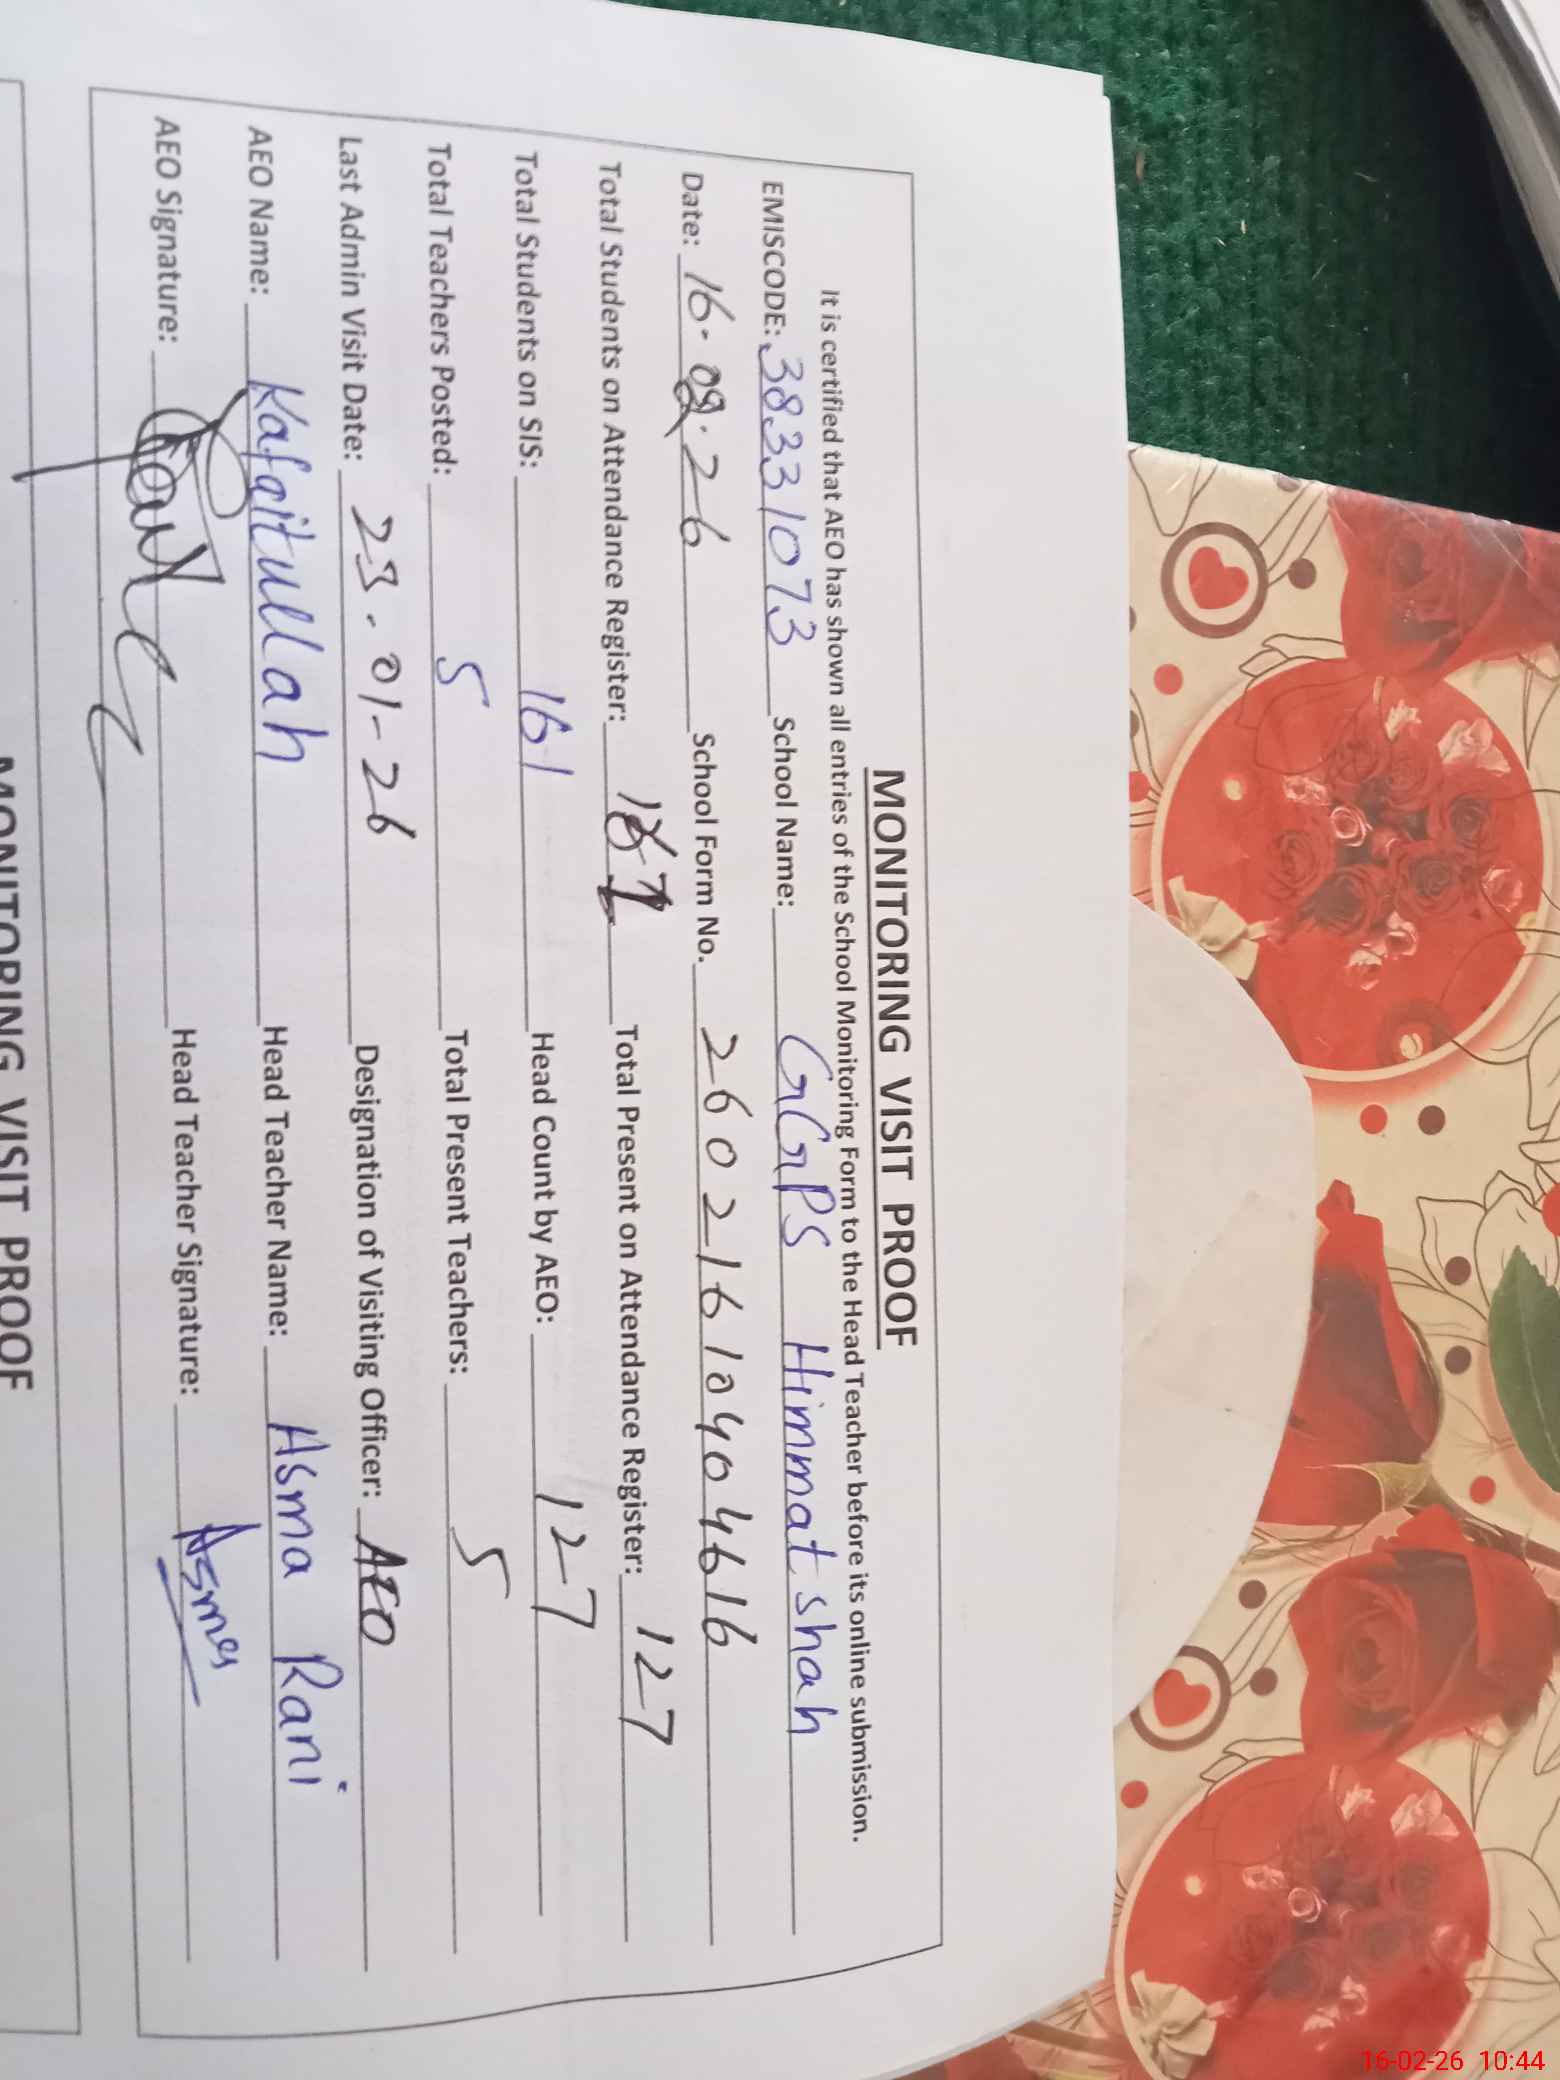 MONITORING VISIT PROOF
It is certified that AEO has shown all entries of the School Monitoring Form to the Head Teacher before its online submission.
EMISCODE: 38331073 School Name: GGPS Himmat shah
Date: 16.02.26 School Form No. 26021610404616
Total Students on Attendance Register: 161 Total Present on Attendance Register: 127
Total Students on SIS: 161 Head Count by AEO: 127
Total Teachers Posted: 5 Total Present Teachers: 5
Last Admin Visit Date: 23-01-26 Designation of Visiting Officer: AEO
AEO Name: Kafaitullah Head Teacher Name: Asma Rani
AEO Signature: Head Teacher Signature: Asma
MONITORING VISIT PROOF
16-02-26 10:44